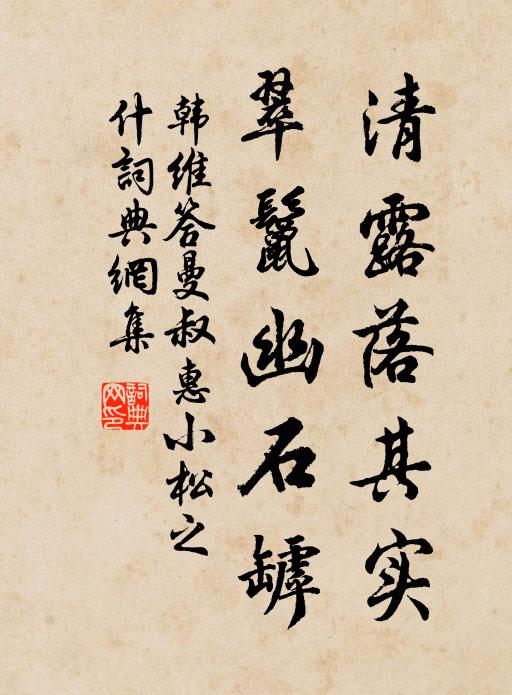 清露落其实
翠鬣幽石罅
韩维答曼叔惠小松之
什詞典網集
詞典
网印